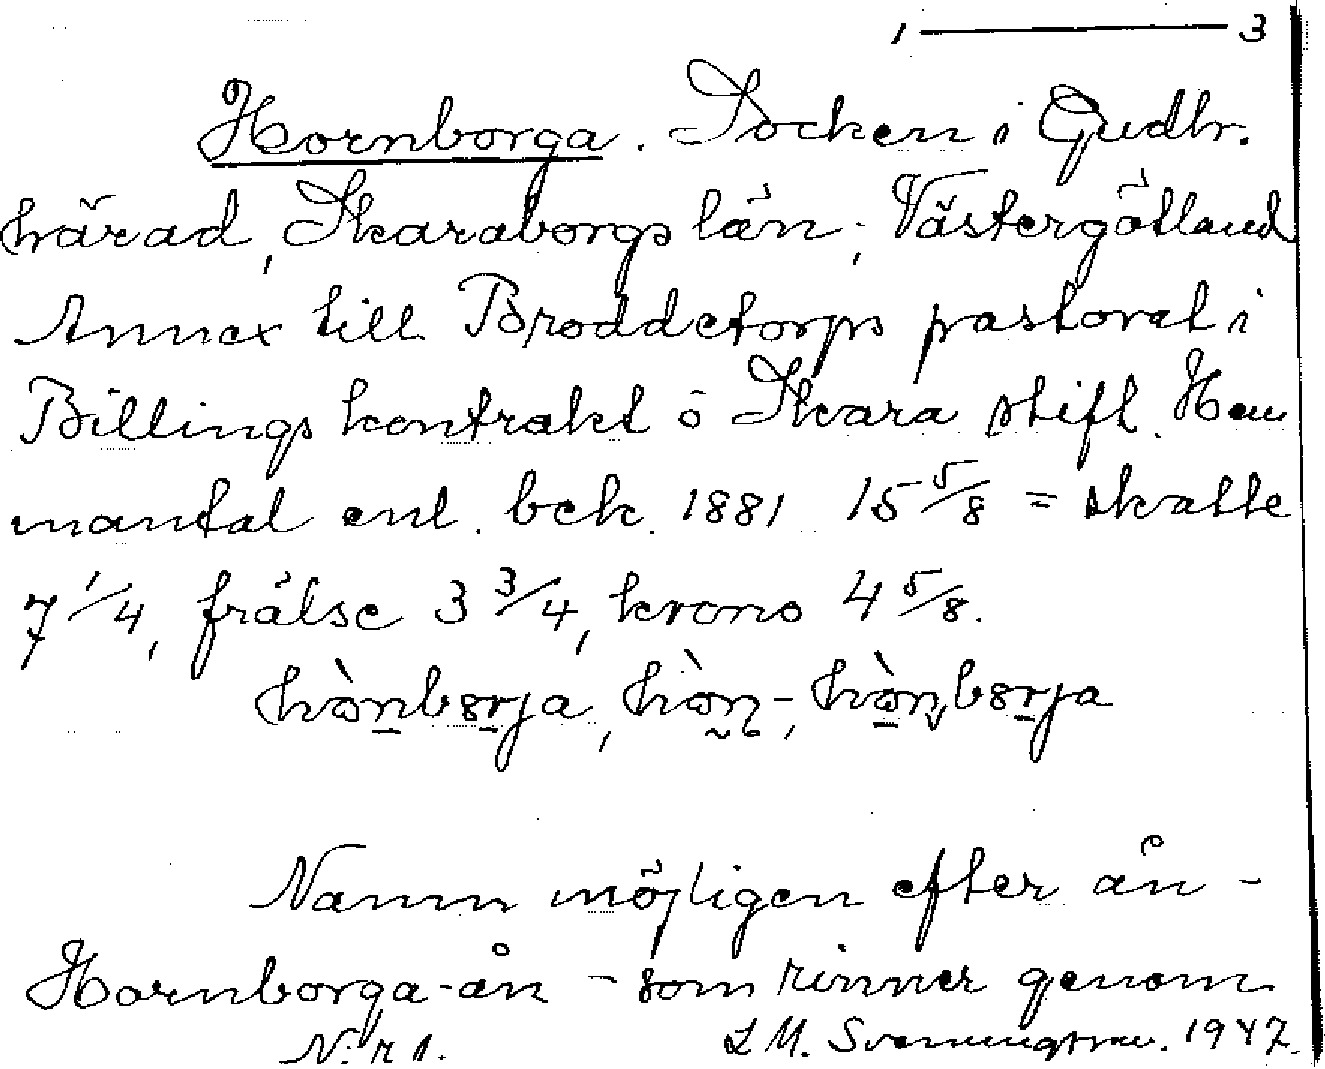 1 — 3
Hornborga. Socken i Gudh.
härad, Skaraborgs län; Västergötland
Annex till Broddetorps pastorat i
Billings kontrakt ö Skara stift. Hem
mantal enl. bek. 1881 15 5/8 = skatte
7 1/4, frälse 3 3/4, krono 4 5/8.
hònbɜrja, hòn-, hònbɜrja
Namn möjligen efter ån -
Hornborga-ån - som rinner genom
N:r 1. L M. Svenungsson. 1947